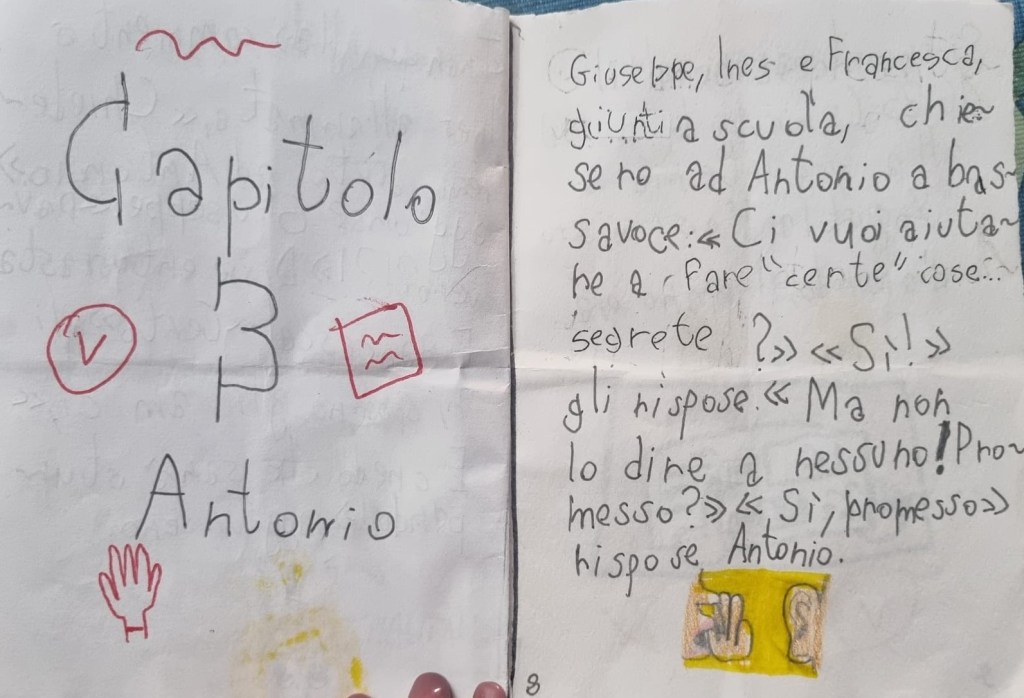 Capitolo
3
V
Antonio
Giuseppe, Ines e Francesca,
giunti a scuola, chie~
sero ad Antonio a bas~
savoce: « Ci vuoi aiuta~
re a fare "certe" cose...
segrete ?» «Sì!»
gli rispose. « Ma non
lo dire a nessuno! Pro~
messo?» « Sì, promesso»
rispose Antonio.
8